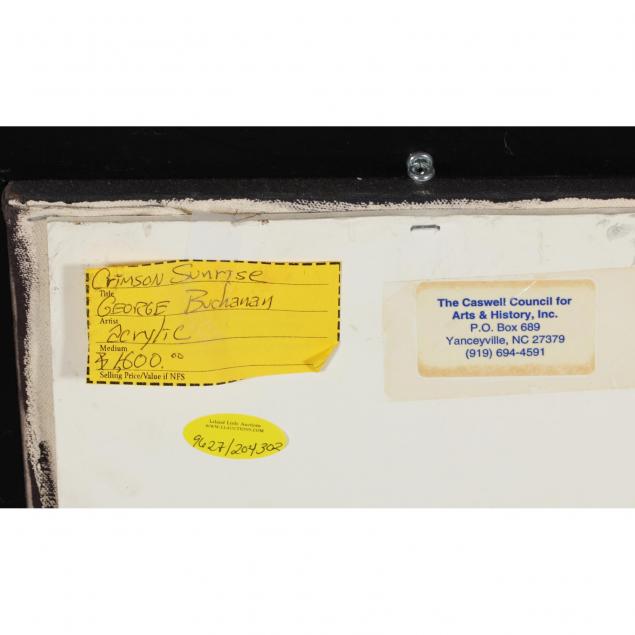 Crimson Sunrise
Title
GEORGE Buchanan
Artist
Acrylic
Medium
$1,600.00
Selling Price/Value if NFS
The Caswell Council for
Arts & History, Inc.
P.O. Box 689
Yanceyville, NC 27379
(919) 694-4591
Leland Little Auctions
WWW.LLAUCTIONS.COM
9627/204302